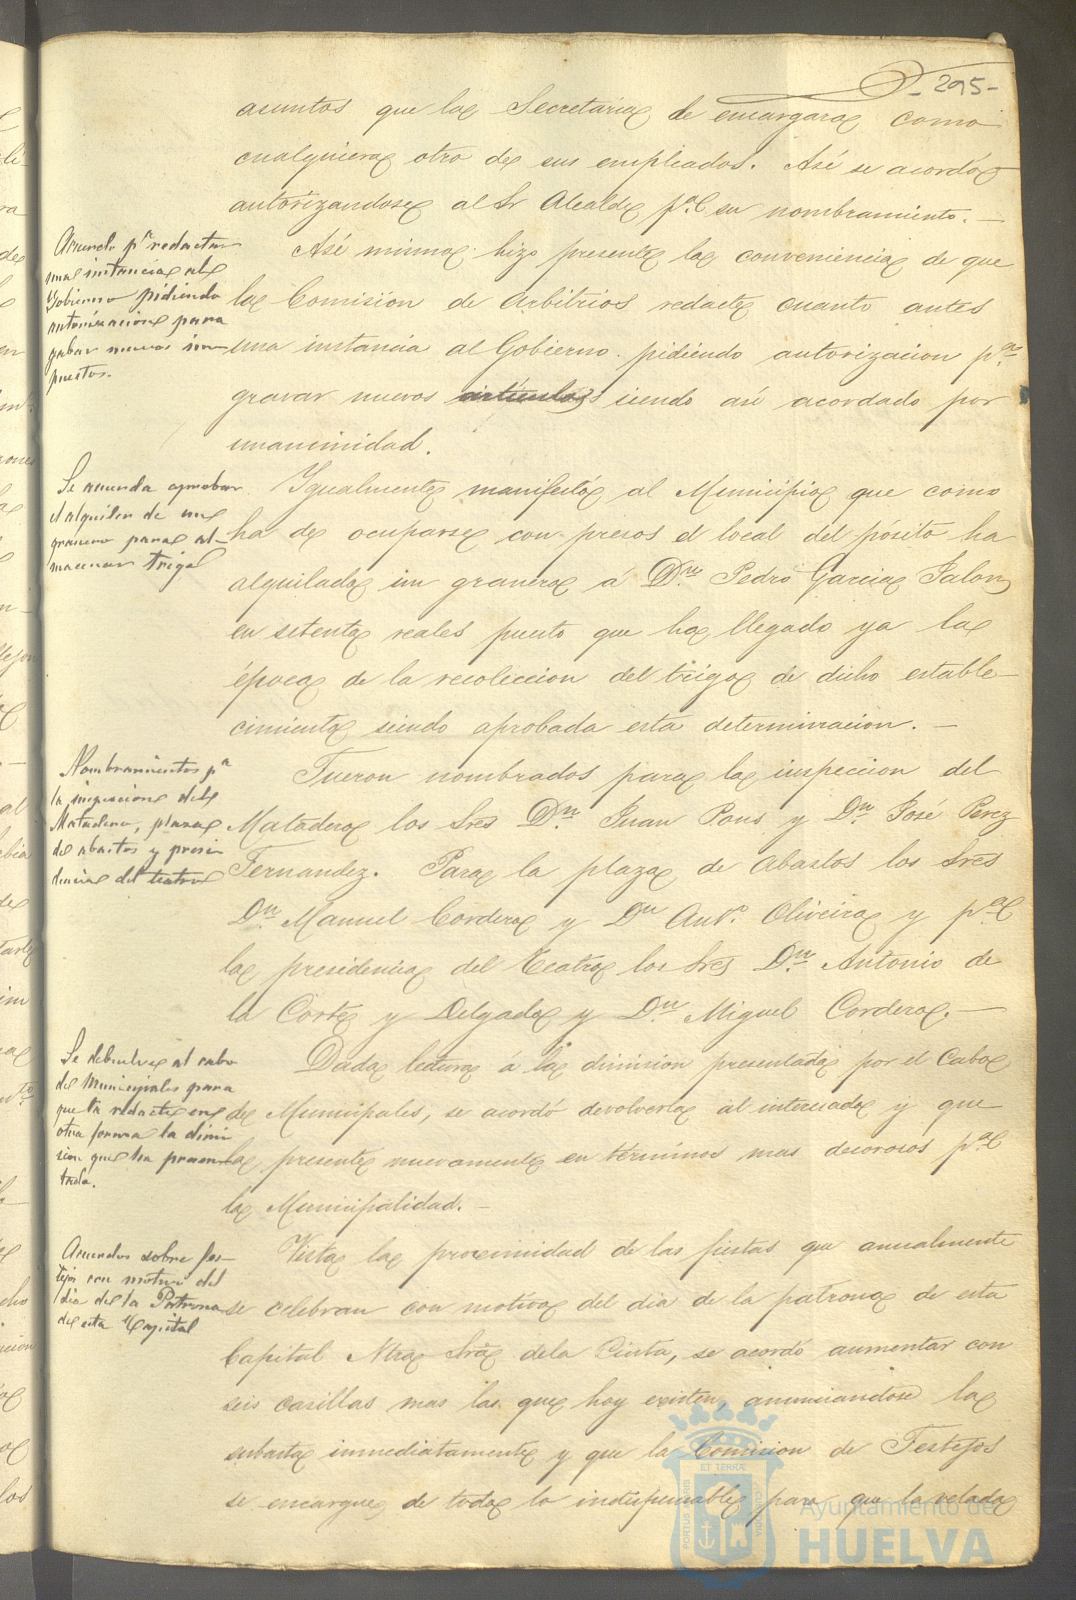 - 295 -
asuntos que la Secretaria le encargara como
cualquiera otro de sus empleados. Así se acordó
autorizandose al Sr Alcalde pª su nombramiento. —
Acuerdo pª redactar
una instancia al
Gobierno pidiendo
autorización para
grabar nuevos im-
puestos.
Asi mismo hizo presente la conveniencia de que
la Comisión de Arbitrios redacte cuanto antes
una instancia al Gobierno pidiendo autorizacion pª
gravar nuevos articulos siendo asi acordado por
unanimidad.
Se acuerda aprobar
el alquiler de un
granero para al-
macenar trigo
Igualmente manifestó al Municipio que como
ha de ocuparse con presos el local del pósito ha
alquilado un granero á Dn Pedro Garcia Jalon
en setenta reales puesto que ha llegado ya la
época de la recoleccion del trigo de dicho estable-
cimiento siendo aprobada esta determinacion. —
Nombramientos pª
la inspeccion del
Matadero, plaza
de abastos y presi-
dencia del teatro
Fueron nombrados para la inspeccion del
Matadero los Sres Dn Juan Pons y Dn José Perez
Fernandez. Para la plaza de Abastos los Sres
Dn Manuel Cordero y Dn Antº Oliveira y pª
la presidencia del Teatro los Sres Dn Antonio de
la Corte y Delgado y Dn Miguel Cordero. —
Se debuelve al cabo
de Municipales para
que la redacte en
otra forma la dimi-
sion que ha presen-
tado.
Dada lectura á la dimision presentada por el Cabo
de Municipales, se acordó devolverla al interesado y que
la presente nuevamente en términos mas decorosos pª
la Municipalidad. —
Acuerdos sobre fes-
tejos con motivo del
dia de la Patrona
de esta Capital
Vista la proximidad de las fiestas que anualmente
se celebran con motivo del dia de la patrona de esta
Capital Ntra Sra de la Cinta, se acordó aumentar con
seis casillas mas las que hoy existen, anunciandose la
subasta inmediatamente y que la Comision de Festejos
se encargue de todo lo indispensable para que la velada
PORTUS MARIS
ET TERRÆ
CUSTODIA
Ayuntamiento de
HUELVA